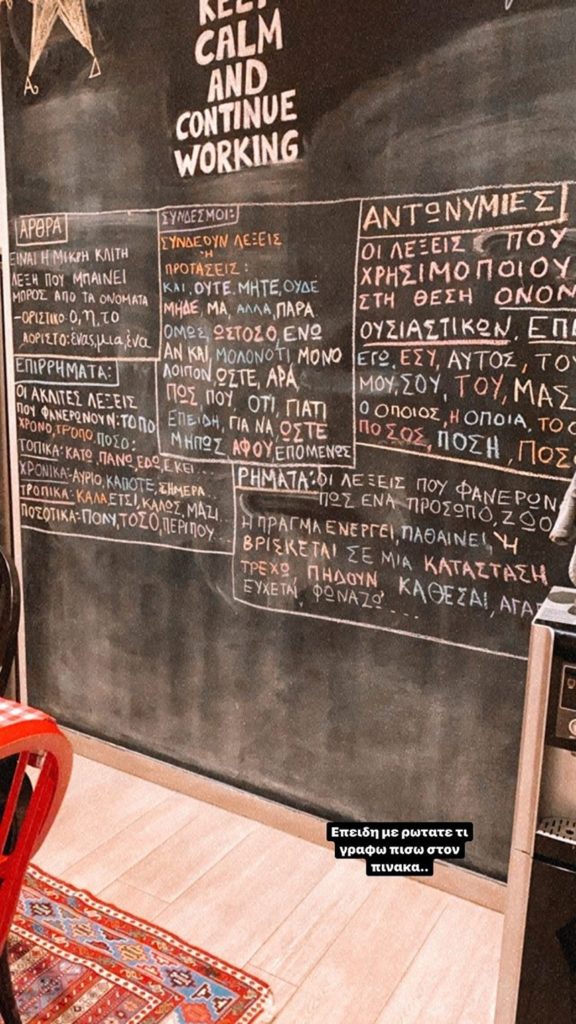 KEEP
CALM
AND
CONTINUE
WORKING
ΑΡΘΡΑ
ΕΙΝΑΙ Η ΜΙΚΡΗ ΚΛΙΤΗ
ΛΕΞΗ ΠΟΥ ΜΠΑΙΝΕΙ
ΜΠΡΟΣ ΑΠΟ ΤΑ ΟΝΟΜΑΤΑ
-ΟΡΙΣΤΙΚΟ: Ο, η, το
ΑΟΡΙΣΤΟ: ένας, μια, ένα
ΕΠΙΡΡΗΜΑΤΑ:
ΟΙ ΑΚΛΙΤΕΣ ΛΕΞΕΙΣ
ΠΟΥ ΦΑΝΕΡΩΝΟΥΝ: ΤΟΠΟ
ΧΡΟΝΟ, ΤΡΟΠΟ, ΠΟΣΟ:
ΤΟΠΙΚΑ: ΚΑΤΩ, ΠΑΝΩ, ΕΔΩ, ΕΚΕΙ...
ΧΡΟΝΙΚΑ: ΑΥΡΙΟ, ΚΑΠΟΤΕ, ΣΗΜΕΡΑ..
ΤΡΟΠΙΚΑ: ΚΑΛΑ, ΕΤΣΙ, ΚΑΛΩΣ, ΜΑΖΙ..
ΠΟΣΟΤΙΚΑ: ΠΟΛΥ, ΤΟΣΟ, ΠΕΡΙΠΟΥ...
ΣΥΝΔΕΣΜΟΙ:
ΣΥΝΔΕΟΥΝ ΛΕΞΕΙΣ
Ή
ΠΡΟΤΑΣΕΙΣ:
ΚΑΙ, ΟΥΤΕ, ΜΗΤΕ, ΟΥΔΕ
ΜΗΔΕ, ΜΑ, ΑΛΛΑ, ΠΑΡΑ
ΟΜΩΣ, ΩΣΤΟΣΟ, ΕΝΩ
ΑΝ ΚΑΙ, ΜΟΛΟΝΟΤΙ, ΜΟΝΟ
ΛΟΙΠΟΝ, ΩΣΤΕ, ΑΡΑ
ΠΩΣ ΠΟΥ, ΟΤΙ, ΓΙΑΤΙ
ΕΠΕΙΔΗ, ΓΙΑ ΝΑ, ΩΣΤΕ
ΜΗΠΩΣ ΑΦΟΥ, ΕΠΟΜΕΝΩΣ
ΑΝΤΩΝΥΜΙΕΣ
ΟΙ ΛΕΞΕΙΣ ΠΟΥ
ΧΡΗΣΙΜΟΠΟΙΟΥ
ΣΤΗ ΘΕΣΗ ΟΝΟΜ
ΟΥΣΙΑΣΤΙΚΩΝ, ΕΠΙ
ΕΓΩ, ΕΣΥ, ΑΥΤΟΣ, ΤΟΥ
ΜΟΥ, ΣΟΥ, ΤΟΥ, ΜΑΣ
Ο ΟΠΟΙΟΣ, Η ΟΠΟΙΑ, ΤΟ Ο
ΠΟΣΟΣ, ΠΟΣΗ, ΠΟΣ
ΡΗΜΑΤΑ: ΟΙ ΛΕΞΕΙΣ ΠΟΥ ΦΑΝΕΡΩΝ
ΠΩΣ ΕΝΑ ΠΡΟΣΩΠΟ, ΖΩΟ
Η ΠΡΑΓΜΑ ΕΝΕΡΓΕΙ, ΠΑΘΑΙΝΕΙ Ή
ΒΡΙΣΚΕΤΑΙ ΣΕ ΜΙΑ ΚΑΤΑΣΤΑΣΗ
ΤΡΕΧΩ ΠΗΔΟΥΝ ΚΑΘΕΣΑΙ, ΑΓΑΠ
ΕΥΧΕΤΑΙ ΦΩΝΑΖΩ ....
Επειδη με ρωτατε τι
γραφω πισω στον
πινακα..